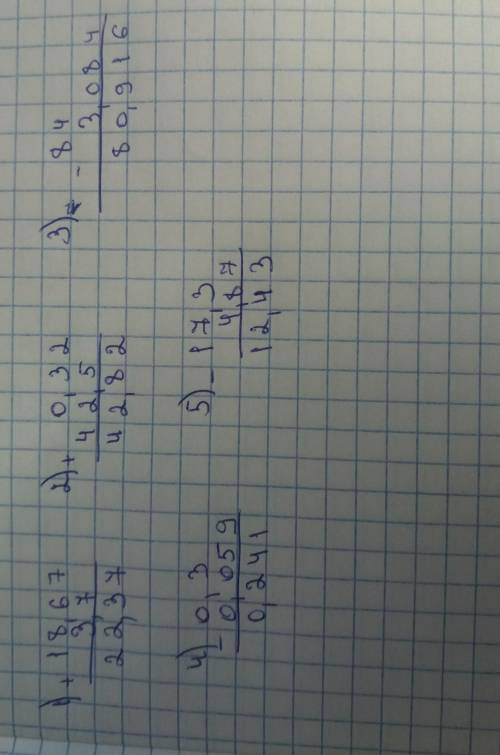 1) + 18,67
3,7
22,37
2) + 0,32
42,5
42,82
3) - 84
3,084
80,916
4) - 0,3
0,059
0,241
5) - 17,3
4,87
12,43